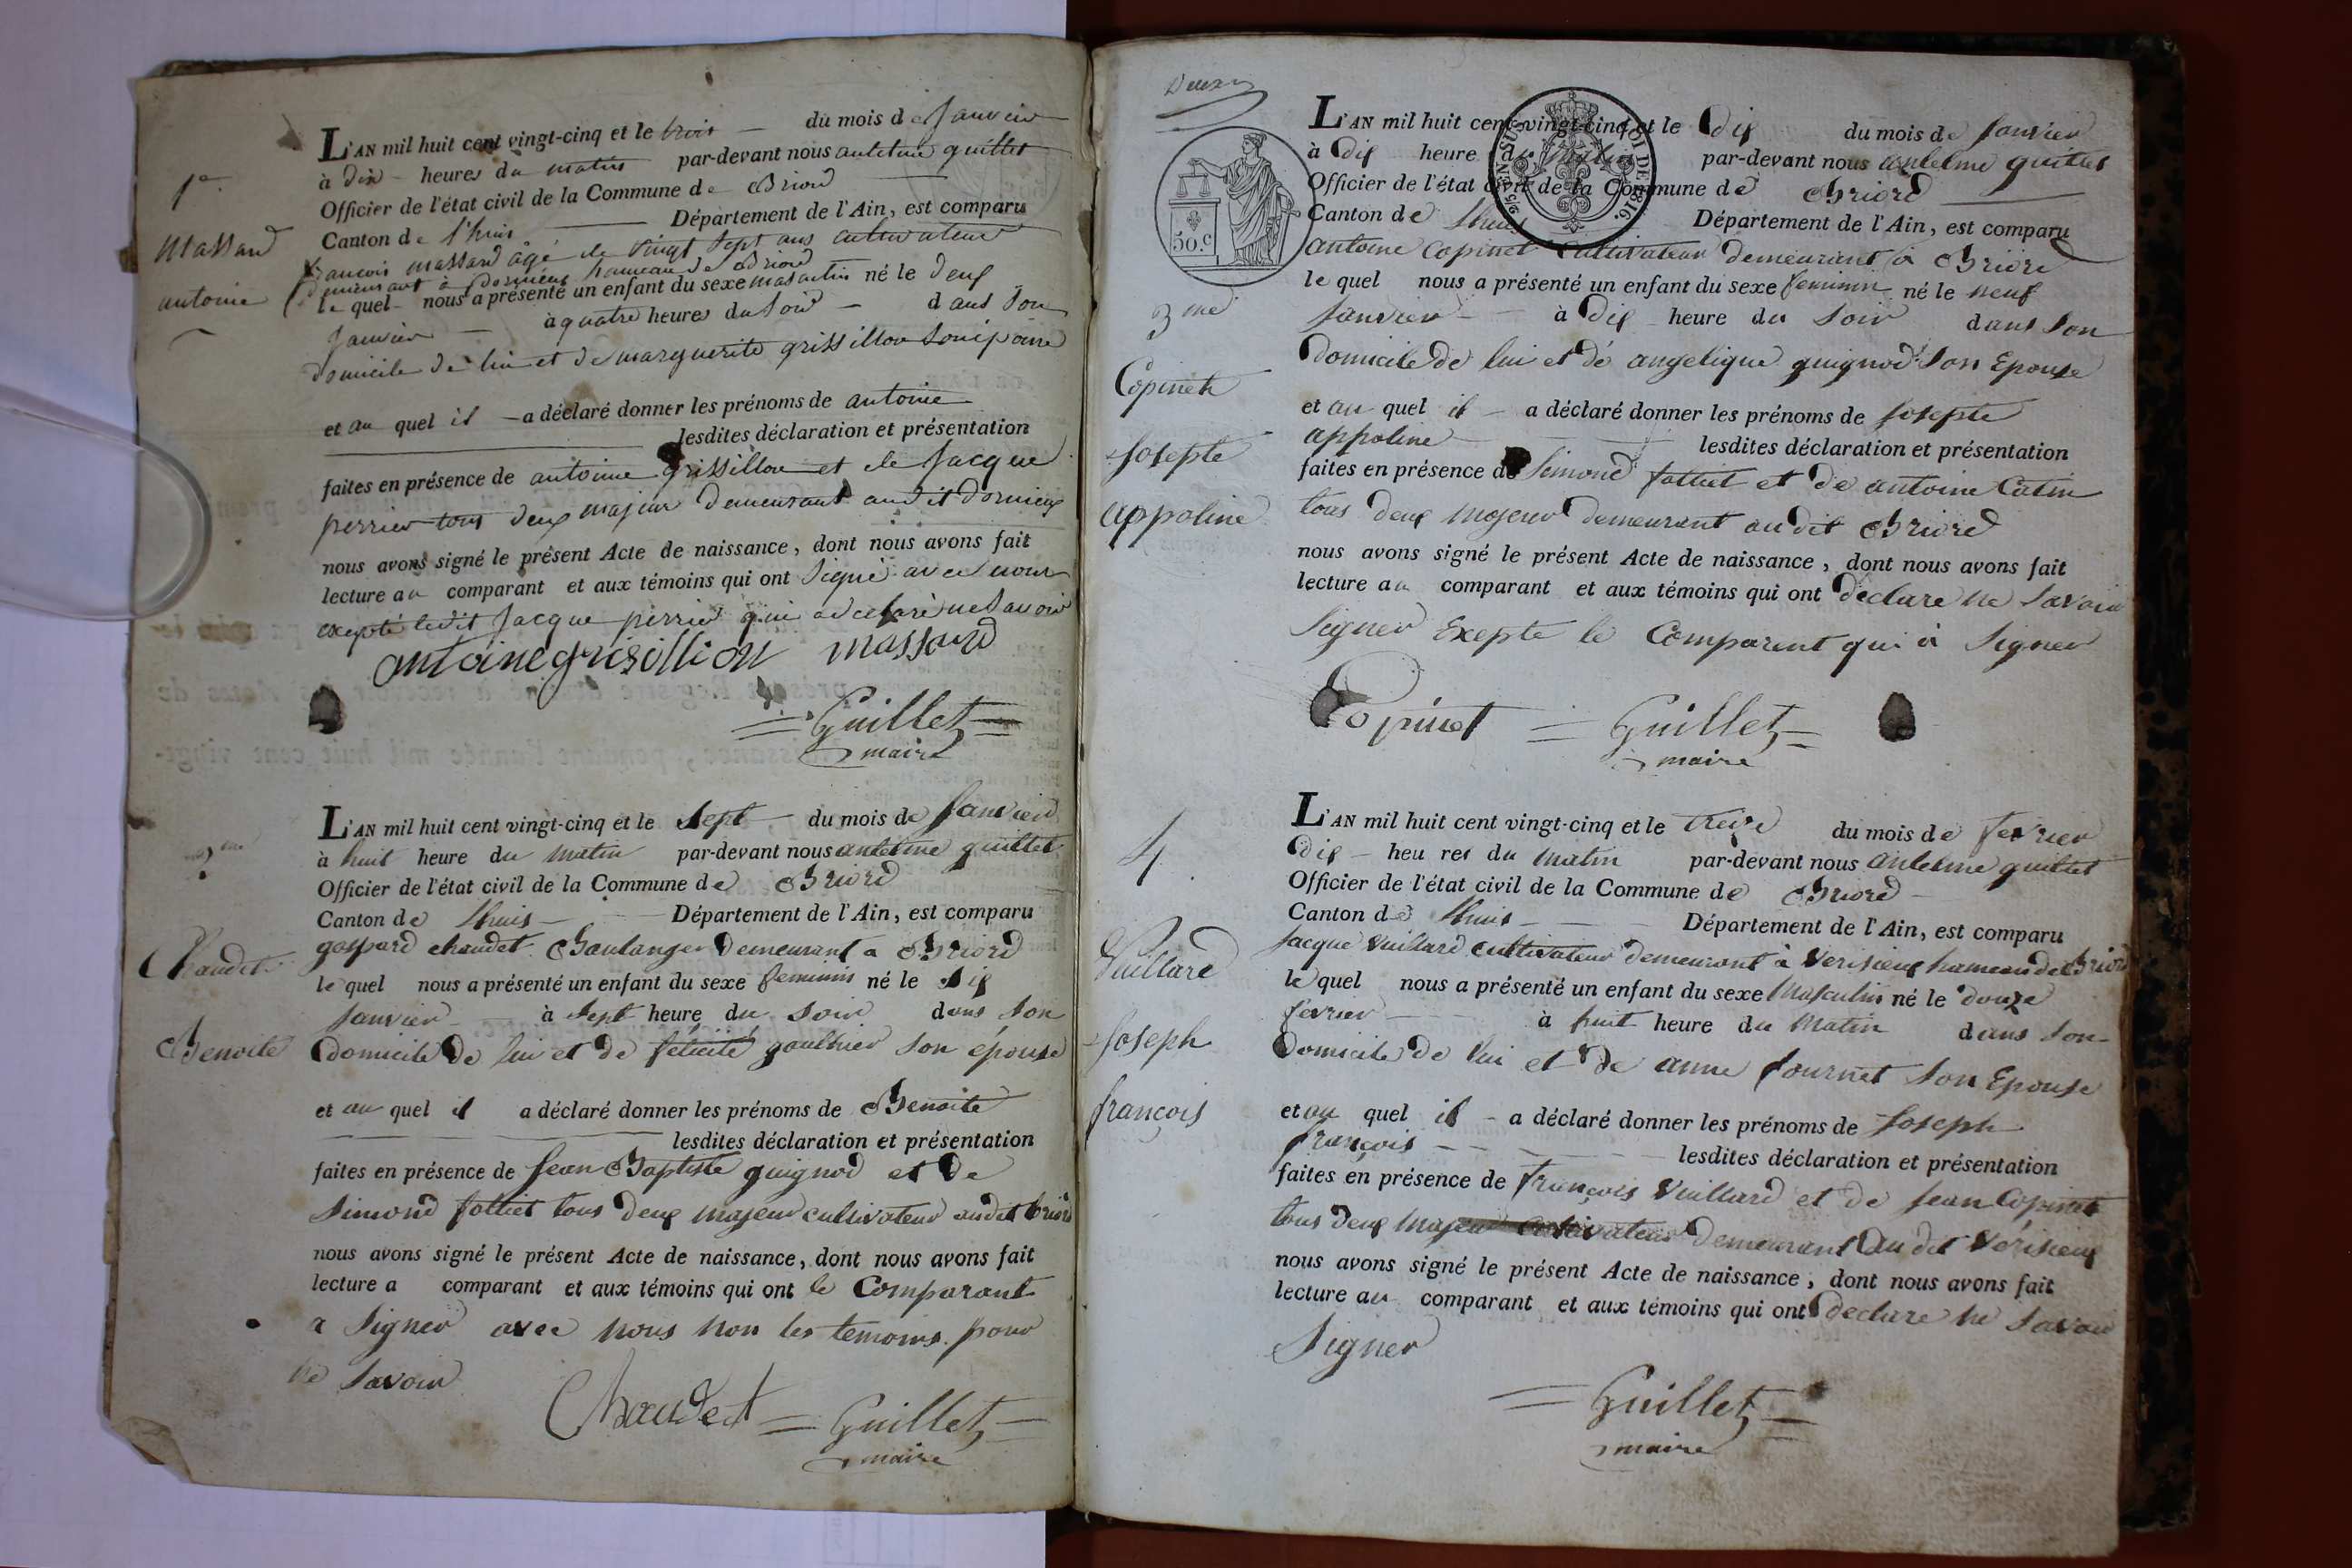 1er
Massard
antoine
L'AN mil huit cent vingt-cinq et le trois du mois de Janvier
à dix heures du matin par-devant nous antelme guillet
Officier de l'état civil de la Commune de Briord
Canton de l'huis Département de l'Ain, est comparu
françois massard âgé de vingt sept ans cultivateur
demeurant à dornieux hameau de Briord
le quel nous a présenté un enfant du sexe masculin né le deux
Janvier à quatre heures du soir dans son
domicile de lui et de marguerite grissillon son épouse
et au quel il a déclaré donner les prénoms de antoine
lesdites déclaration et présentation
faites en présence de antoine grissillon et de Jacque
perrier tous deux majeur demeurant audit dornieux
nous avons signé le présent Acte de naissance, dont nous avons fait
lecture au comparant et aux témoins qui ont signé avec nous
excepté ledit Jacque perrier qui a déclaré ne savoir
antoine grisillion massard
Guillet
maire
2me
Chaudet
Benoite
L'AN mil huit cent vingt-cinq et le sept du mois de Janvier
à huit heure du matin par-devant nous antelme guillet
Officier de l'état civil de la Commune de Briord
Canton de Lhuis Département de l'Ain, est comparu
gaspard chaudet Boulanger demeurant a Briord
le quel nous a présenté un enfant du sexe feminin né le six
Janvier à sept heure du soir dans son
domicile de lui et de félicité gaulthier son épouse
et au quel il a déclaré donner les prénoms de Benoite
lesdites déclaration et présentation
faites en présence de Jean Baptiste guignod et de
Simond folliet tous deux majeur cultivateur audit briord
nous avons signé le présent Acte de naissance, dont nous avons fait
lecture a comparant et aux témoins qui ont le Comparant
a signer avec nous non les temoins pour
ne savoir
Chaudet Guillet
maire
Deux
50.c
EN SUS
ROI DE 1816
3me
Copinet
Josepte
appoline
L'AN mil huit cent vingt-cinq et le dix du mois de Janvier
à dix heure du matin par-devant nous antelme guillet
Officier de l'état civil de la Commune de Briord
Canton de Lhuis Département de l'Ain, est comparu
antoine Copinet Cultivateur demeurant à Briord
le quel nous a présenté un enfant du sexe feminin né le neuf
Janvier à dix heure du soir dans son
domicile de lui et de angelique guignod son Epouse
et au quel il a déclaré donner les prénoms de Josepte
appoline lesdites déclaration et présentation
faites en présence de Simond folliet et de antoine Catin
tous deux majeur demeurant audit Briord
nous avons signé le présent Acte de naissance, dont nous avons fait
lecture au comparant et aux témoins qui ont declare ne savoir
signer Exepte le Comparent qui à signer
Copinet Guillet
maire
4
Vuillard
Joseph
françois
L'AN mil huit cent vingt-cinq et le treize du mois de fevrier
dix heures du matin par-devant nous antelme guillet
Officier de l'état civil de la Commune de Briord
Canton de Lhuis Département de l'Ain, est comparu
Jacque vuillard cultivateur demeurant à verisieux hameau de Briord
le quel nous a présenté un enfant du sexe Masculin né le douze
fevrier à huit heure du matin dans son
domicile de lui et de anne fournet son Epouse
et au quel il a déclaré donner les prénoms de Joseph
françois lesdites déclaration et présentation
faites en présence de françois vuillard et de Jean Copinet
tous deux majeur cultivateur demeurant audit verisieux
nous avons signé le présent Acte de naissance, dont nous avons fait
lecture au comparant et aux témoins qui ont declare ne savoir
signer
Guillet
maire